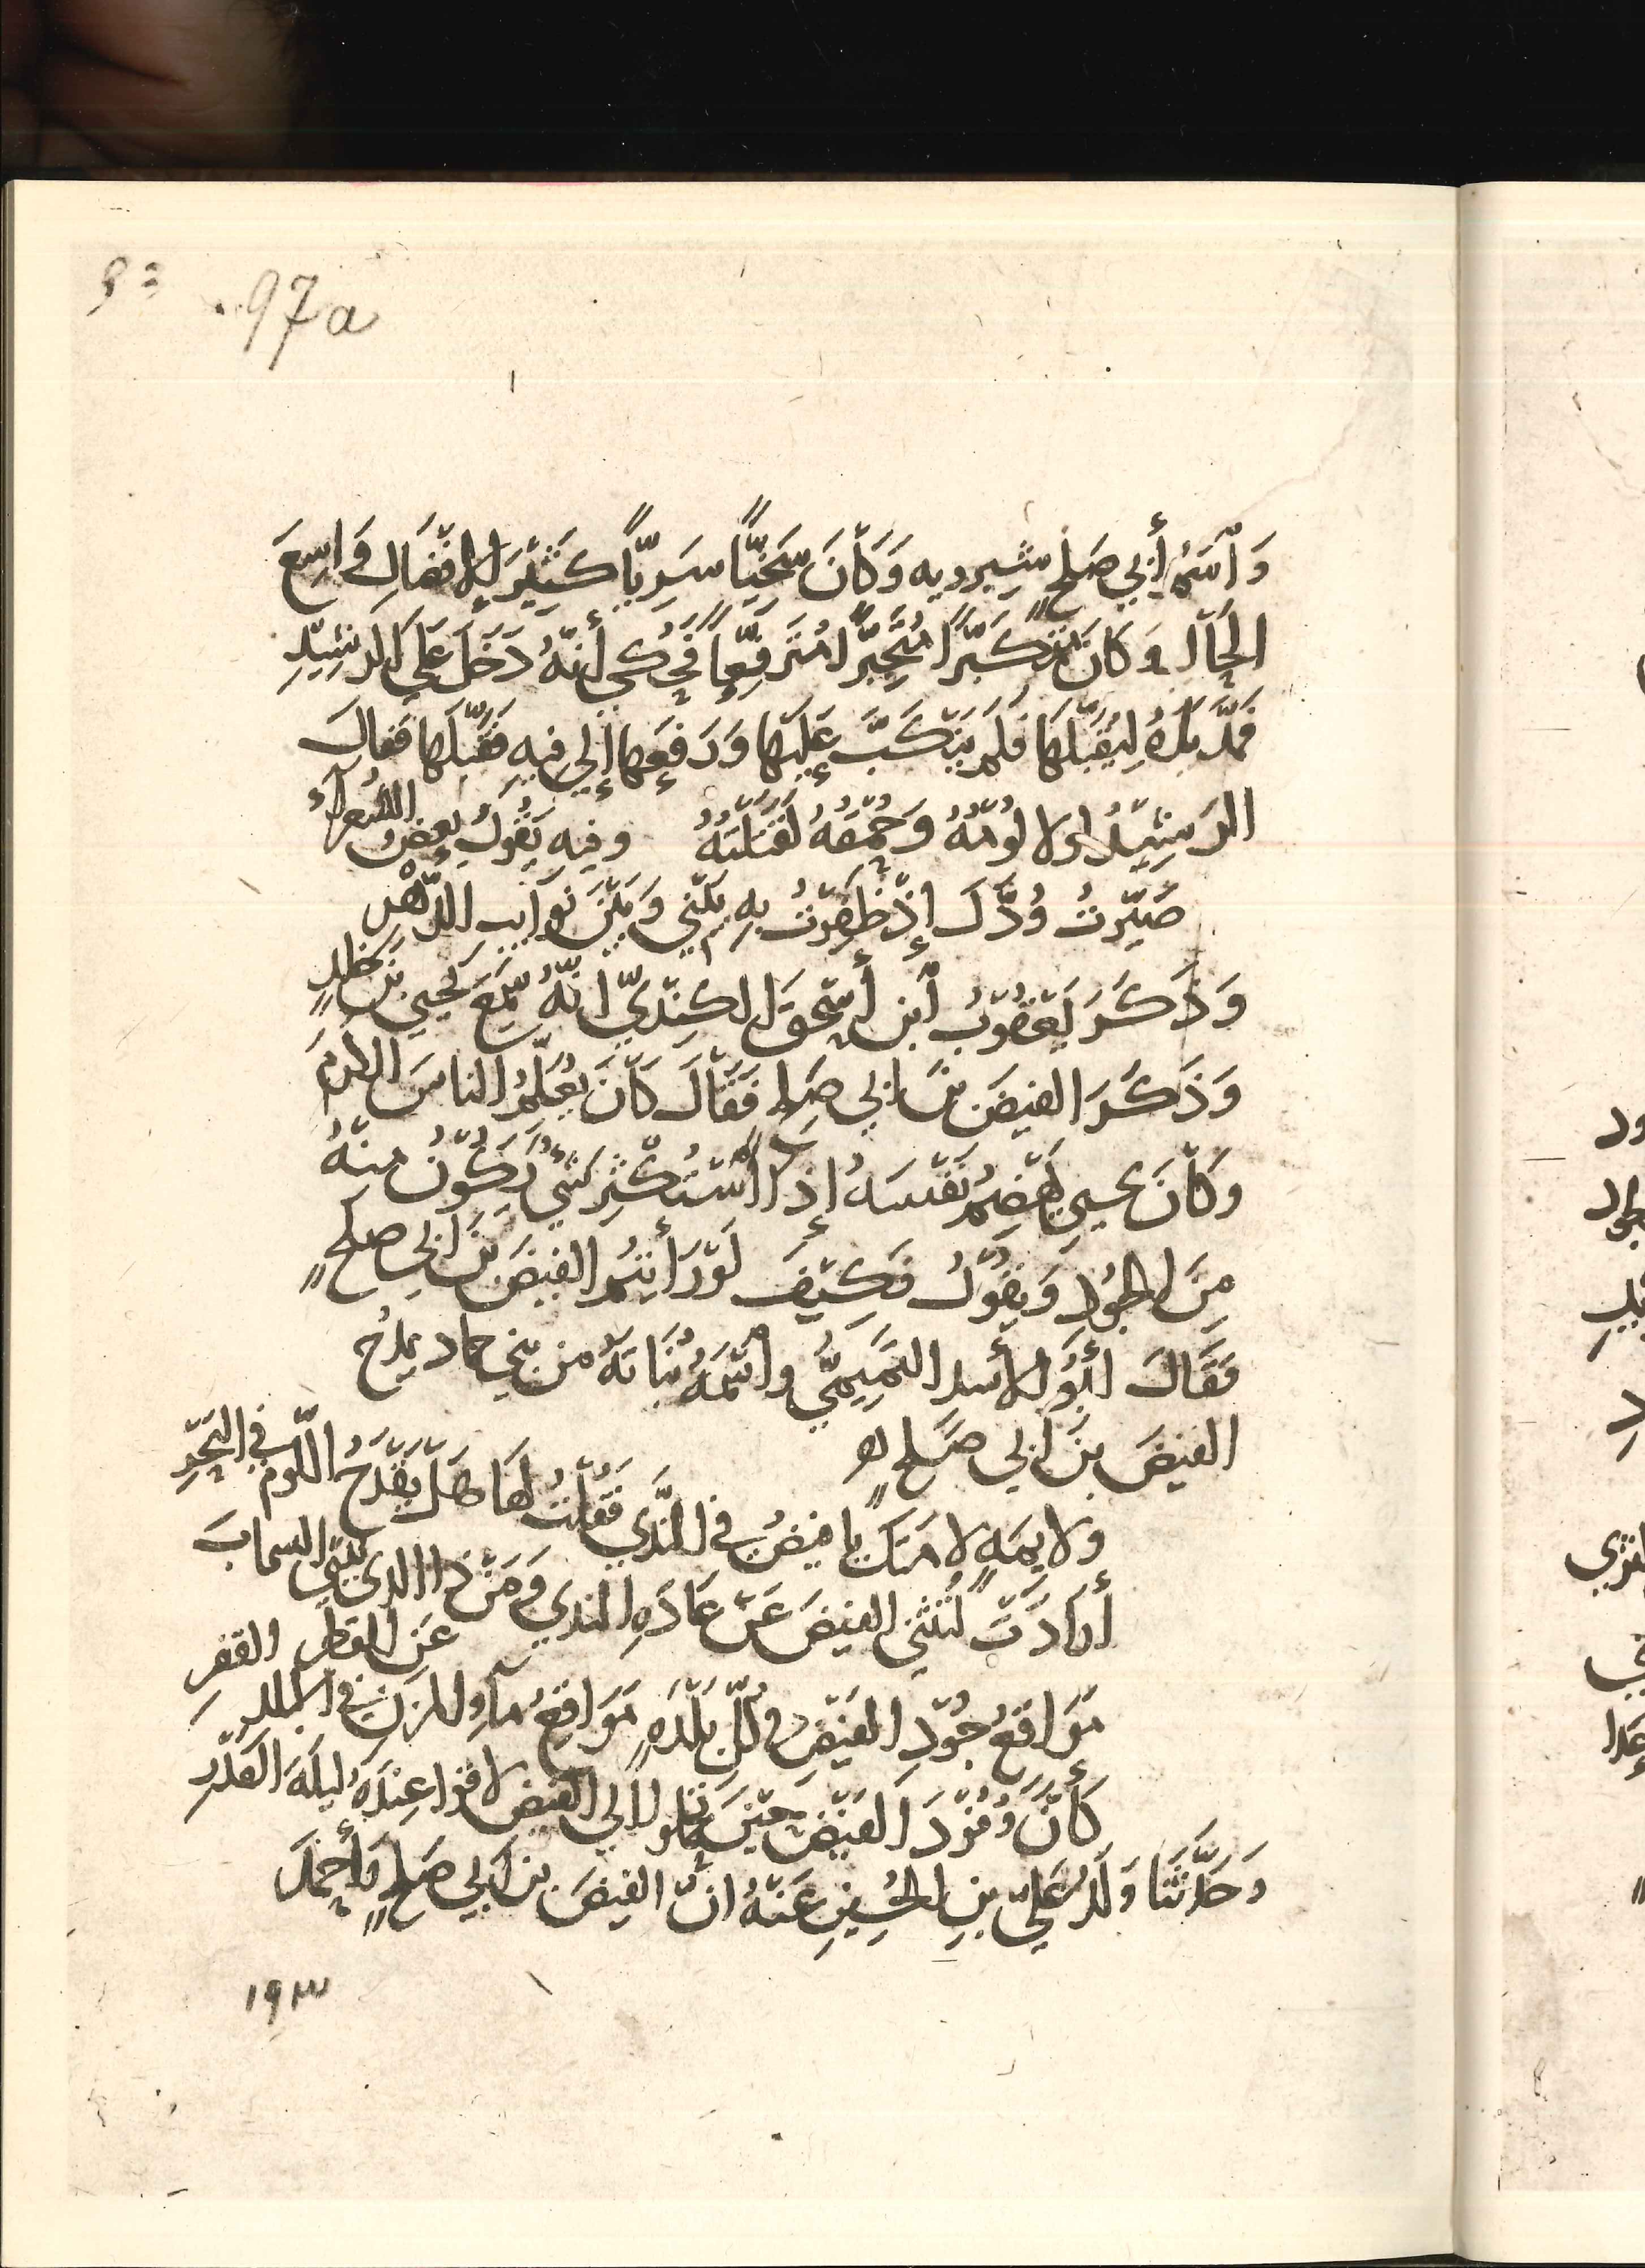 97a
وَاسْمُ أَبِي صَلحٍ شِيرويه وَكَانَ سَخِيًّا سَرِيًّا كَثِيْرَ الإفضَالِ وَاسِعَ
الحَالِ وَكَانَ مُتَكَبِّرًا مُتَجَبِّرًا مُتَرَفِّعًا فَحُكِي أَنَّهُ دَخَلَ عَلَي الرشِيْدِ
فَمَدَّ يَدَهُ لِيُقَبِّلَهَا فَلَم يَنْكَبَّ عَلَيْهَا وَرَفَعَها إلي فِيهِ فَقَبَّلَها فَقالَ
الرَشِيْدُ لولا لُوْمُهُ وَحُمْقُهُ لَقَتَلْتُهُ وفيه يَقُولُ بعضُ الشُعرآءُ
صَيَّرتُ وُدَّكَ إذْ ظَفِرْتُ بِهِ بَيْنِي وَبَيْنَ نَوَايبِ الدَّهْرِ
وَذَكَرَ يَعْقُوبُ ابن أسْحقَ الكِنْدِيّ انَّهُ سَمِعَ يَحيي بنَ خلدٍ
وَذَكَرَ الفيضَ بنَ ابي صَلحٍ فَقَالَ كَانَ يُعَلِّمُ الناسَ الكرمَ
وكَانَ يحيي يَهْضِمُ نَفْسَهُ إذا اسْتُكْثِرَ شَيْءٌ يَكُوْنُ مِنْهُ
مِنَ الجُوْدِ وَيَقُولُ فَكَيْفَ لَوْ رَأيتُم الفيضَ بنَ ابي صلحٍ
فَقَالَ أبُو الأسدِ التَّمِيميُّ واسْمُهُ نُبَاتَةُ من بني حماد يمدحُ
الفيضَ بنَ ابي صَلحٍ
ولايمَةٍ لامَتكَ يا فيضُ في النَّدَي فَقُلْتُ لَهَا هَلْ يَقْدَحُ اللَّومُ في البَحْرِ
أرَادَتْ لتُثْنِي الفيضَ عَنْ عَادَةِ الندي وَمَنْ ذا الذي يثني السحابَ
عَنِ القطرِ
مَوَاقعُ جُوْدِ الفَيْضِ في كُلِّ بَلْدَةٍ مَوَاقِعُ مآءِ المزنِ في البلد القفرِ
كَأنَّ وُفُوْدَ الفَيْضِ حِيْنَ تحملوا إلي الفيض لاقوا عِنْدَهُ لَيلَةَ القَدْرِ
وَحَدَّثَنَا وَلَدُ عَلِيّ بنِ الحُسينِ عَنْهُ انَّ الفيضَ بنَ ابي صَلحٍ وَأحمَدَ
١٩٣